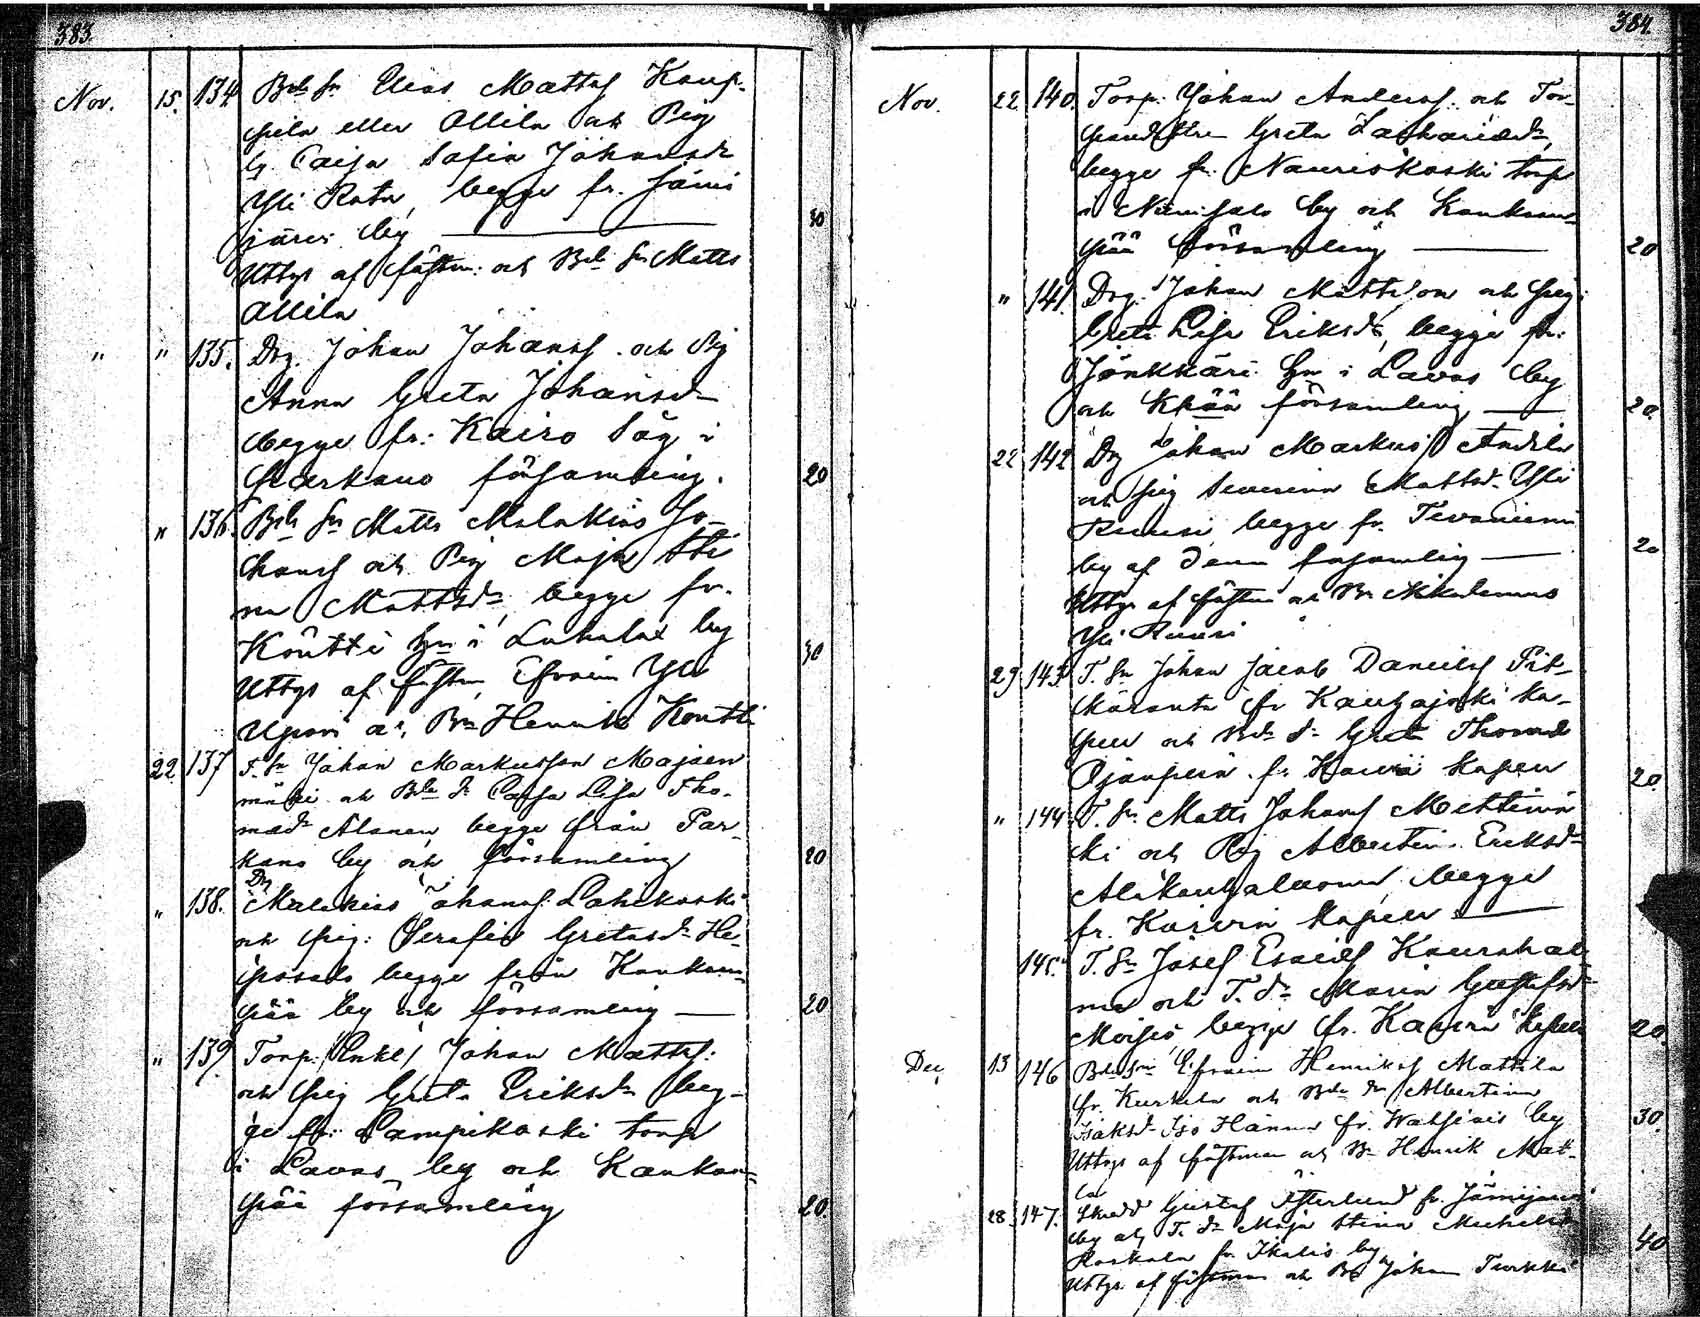 383.
Nov. 15. 134 Bde Sn Elias Mattss Kaup-
pila eller Ollila och Pig
Caisa Sofia Johansdr
Yli Rata, begge fr. Jämi
järvi by — 30
Uttgs af fästm: och Bde Sn Matts
Ollila
" " 135. Drg. Johan Johanss. och Pig
Anna Greta Johansdr
begge fr: Kairo Såg i
Parkano församling. 20
" 136. Bde Sn Matts Malakias Jo-
hanss och Pig Maja Sti
na Mattsdr, begge fr.
Köntti hn i Luhalax by 30
Uttgs af fästm, Efraim Yli
och Bn HenrikKöntti
22. 137 T. Sn Johan Markusson Majaen
mäki och Bde Dr Caisa Lisa Tho-
masdr Alanen, begge från Par-
kano by och församling 20
" 138. Drg Malakias Johanss: Lahikoski
och pig: Serafia Gretasdr He-
posalo begge från Kankan-
pää by och församling — 20
" 139. Torp. (Enkel) Johan Mattss:
och pig Greta Eriksdr beg-
ge fr: Lampikoski torp
i Lavas by och Kankan-
pää församling 20.
384.
Nov. 22. 140. Torp. Johan Anderss: och Tor-
Greta Zachariædr,
begge fr. Nauriskoski torp
i Niinisalo by och Kankan-
pää församling — 20
" 141. Drg. Johan Mattsson och pig:
Greta Lisa Eriksdr, begge fr:
Jönkkäri hn i Lavas by
och Kpää församling — 20.
22 142 Drg Johan Markuss Andila
och pig Severina Mattsd. Yli
Ruusi begge fr. Tevaniemi
by af denna församling — 20
Uttgs af fästm och Bn Nikodemus
Yli Ruusi
29. 143. T. Sn Johan Jacob Danielss Pit-
käranta fr Kauhajoki ka-
pell och Bde Dr Greta Thomasd
Ojanperä fr. Karvia Kapell 20.
" 144. T. Sn. Matts Johanss Mettinmä
ki och Pig Albertina Eriksdr
Alakauhaluoma, begge
fr. Karvia Kapell —
145. T. Sn Josef Esaiess Kaurahal-
ma och T. Dr Maria Gustafsdr
Moisio, begge fr. Karvia Kapell 20.
Dec. 13 146 Bde Sn Efraim Henrikss Mattila
fr. Kurkela och Bde Dr Albertina
Isaksdr Iso Hannu fr. Watsiais by 30.
Uttgs af fästman och Bn Henrik Mat-
la
28. 147. Skredd Gustaf Österlund fr. Jämijärvi
by och T. Dr Maja Stina Michelsdr
Koskela fr Ikalis by 40
Uttgs. af fästman och Bn Johan Turkki